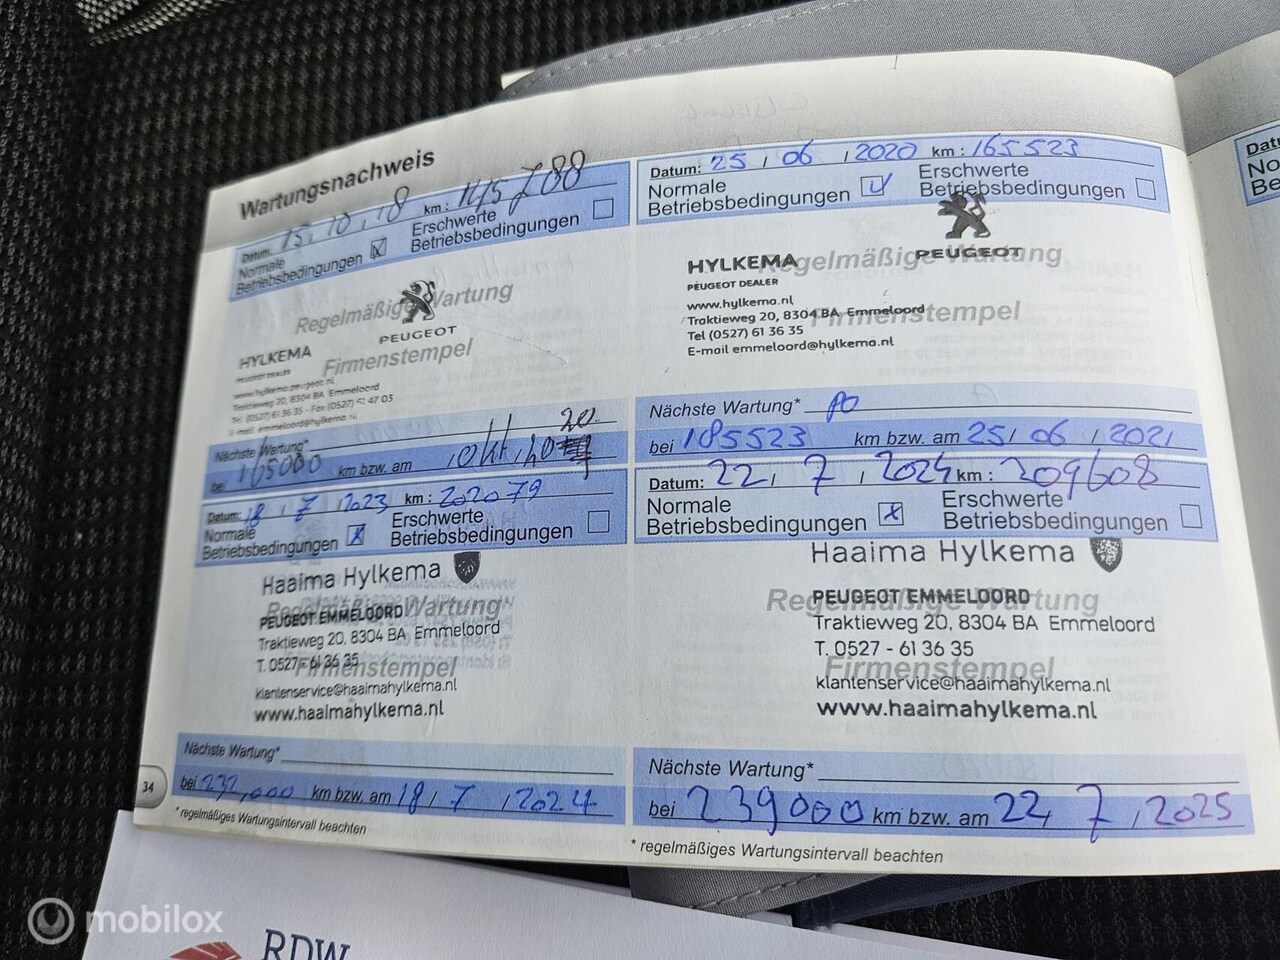 Wartungsnachweis
Datum: 15, 10, 18 km: 145788
Normale Betriebsbedingungen
Erschwerte Betriebsbedingungen
Regelmäßige Wartung
PEUGEOT
Firmenstempel
HYLKEMA
PEUGEOT DEALER
www.hylkema.peugeot.nl
Traktieweg 20, 8304 BA Emmeloord
Tel. (0527) 61 36 35 - Fax (0527) 61 47 03
E-mail: emmeloord@hylkema.nl
Nächste Wartung*
bei 165000 km bzw. am okt, 20
Datum: 25 / 06 / 2020 km: 165523
Normale Betriebsbedingungen
Erschwerte Betriebsbedingungen
PEUGEOT
Regelmäßige Wartung
HYLKEMA
PEUGEOT DEALER
www.hylkema.nl
Traktieweg 20, 8304 BA Emmeloord
Firmenstempel
Tel (0527) 61 36 35
E-mail emmeloord@hylkema.nl
Nächste Wartung*
bei 185523 km bzw. am 25 / 06 / 2021
Datum: 18 / 7 / 2023 km: 202079
Normale Betriebsbedingungen
Erschwerte Betriebsbedingungen
Haaima Hylkema
Regelmäßige Wartung
PEUGEOT EMMELOORD
Traktieweg 20, 8304 BA Emmeloord
T. 0527 - 61 36 35
Firmenstempel
klantenservice@haaimahylkema.nl
www.haaimahylkema.nl
Nächste Wartung*
bei 232,000 km bzw. am 18 / 7 / 2024
* regelmäßiges Wartungsintervall beachten
34
Datum: 22, 7, 2024 km: 209608
Normale Betriebsbedingungen
Erschwerte Betriebsbedingungen
Haaima Hylkema
Regelmäßige Wartung
PEUGEOT EMMELOORD
Traktieweg 20, 8304 BA Emmeloord
T. 0527 - 61 36 35
Firmenstempel
klantenservice@haaimahylkema.nl
www.haaimahylkema.nl
Nächste Wartung*
bei 239000 km bzw. am 22, 7, 2025
* regelmäßiges Wartungsintervall beachten
mobilox
RDW